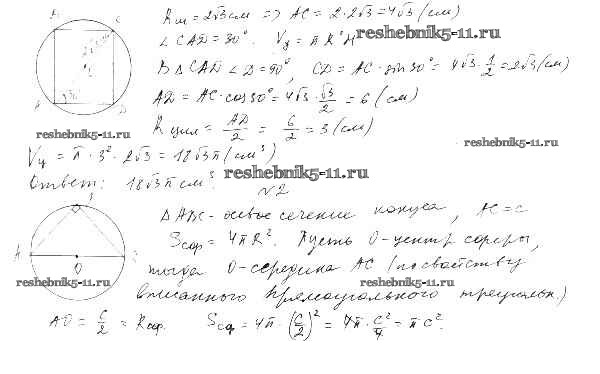 B C
R ш = 2√3 см => AC = 2·2√3 = 4√3 (см)
∠ CAD = 30°. Vц = π R² H
reshebnik5-11.ru
В Δ CAD ∠ D = 90°, CD = AC · sin 30° = 4√3 · 1/2 = 2√3 (см)
30°
A D
AD = AC · cos 30° = 4√3 · √3/2 = 6 (см)
reshebnik5-11.ru
R цил = AD/2 = 6/2 = 3 (см)
reshebnik5-11.ru
Vц = π · 3² · 2√3 = 18√3 π (см³)
Ответ: 18√3 π см³.
reshebnik5-11.ru
N2
Δ ABC - осевое сечение конуса, AC = c
Sсф = 4πR². Пусть O - центр сферы,
A O
reshebnik5-11.ru
тогда O - середина AC (по свойству
reshebnik5-11.ru
вписанного прямоугольного треугольн.)
AO = c/2 = R сф. Sсф = 4π · (c/2)² = 4π · c²/4 = πc².